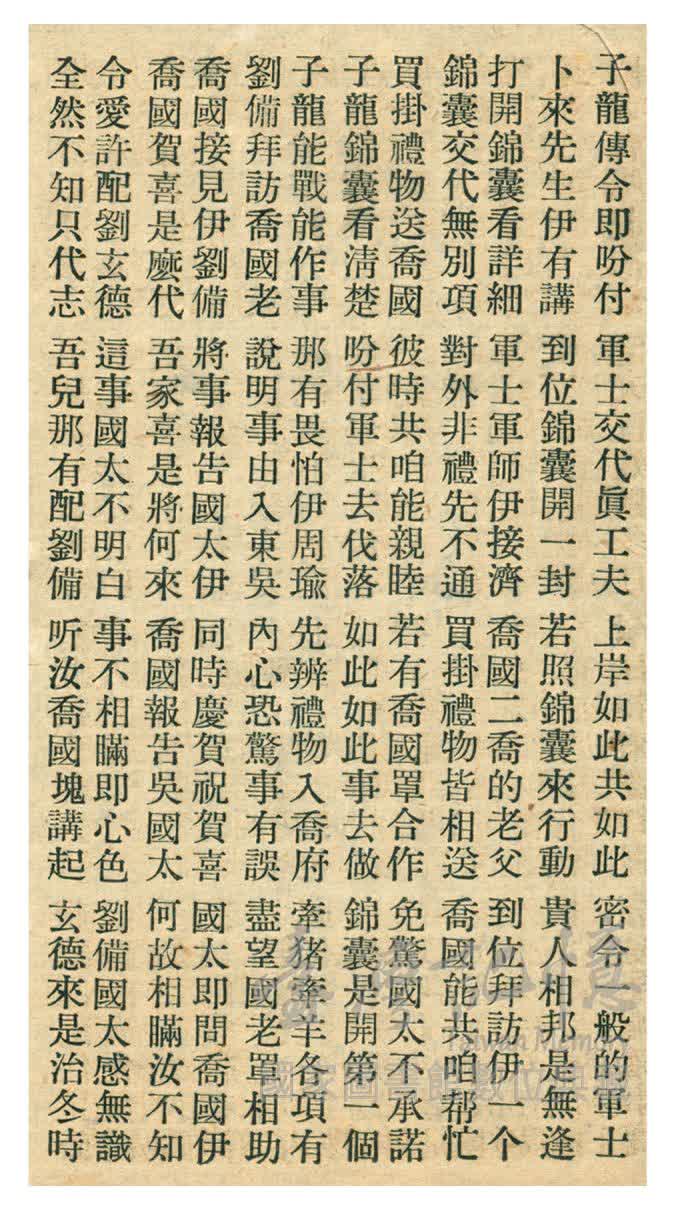 子龍傳令即吩付 軍士交代眞工夫 上岸如此共如此 密令一般的軍士
卜來先生伊有講 到位錦囊開一封 若照錦囊來行動 貴人相邦是無逢
打開錦囊看詳細 軍士軍師伊接濟 喬國二喬的老父 到位拜訪伊一个
錦囊交代無別項 對外非禮先不通 買掛禮物皆相送 喬國能共咱帮忙
買掛禮物送喬國 彼時共咱能親睦 若有喬國罩合作 免驚國太不承諾
子龍錦囊看淸楚 吩付軍士去伐落 如此如此事去做 錦囊是開第一個
子龍能戰能作事 那有畏怕伊周瑜 先辨禮物入喬府 牽猪牽羊各項有
劉備拜訪喬國老 說明事由入東吳 內心恐驚事有誤 盡望國老罩相助
喬國接見伊劉備 將事報告國太伊 同時慶賀祝賀喜 國太即問喬國伊
喬國賀喜是麼代 吾家喜是將何來 喬國報告吳國太 何故相瞞汝不知
令愛許配劉玄德 這事國太不明白 事不相瞞即心色 劉備國太感無識
全然不知只代志 吾兒那有配劉備 听汝喬國塊講起 玄德來是治冬時
國家圖書館